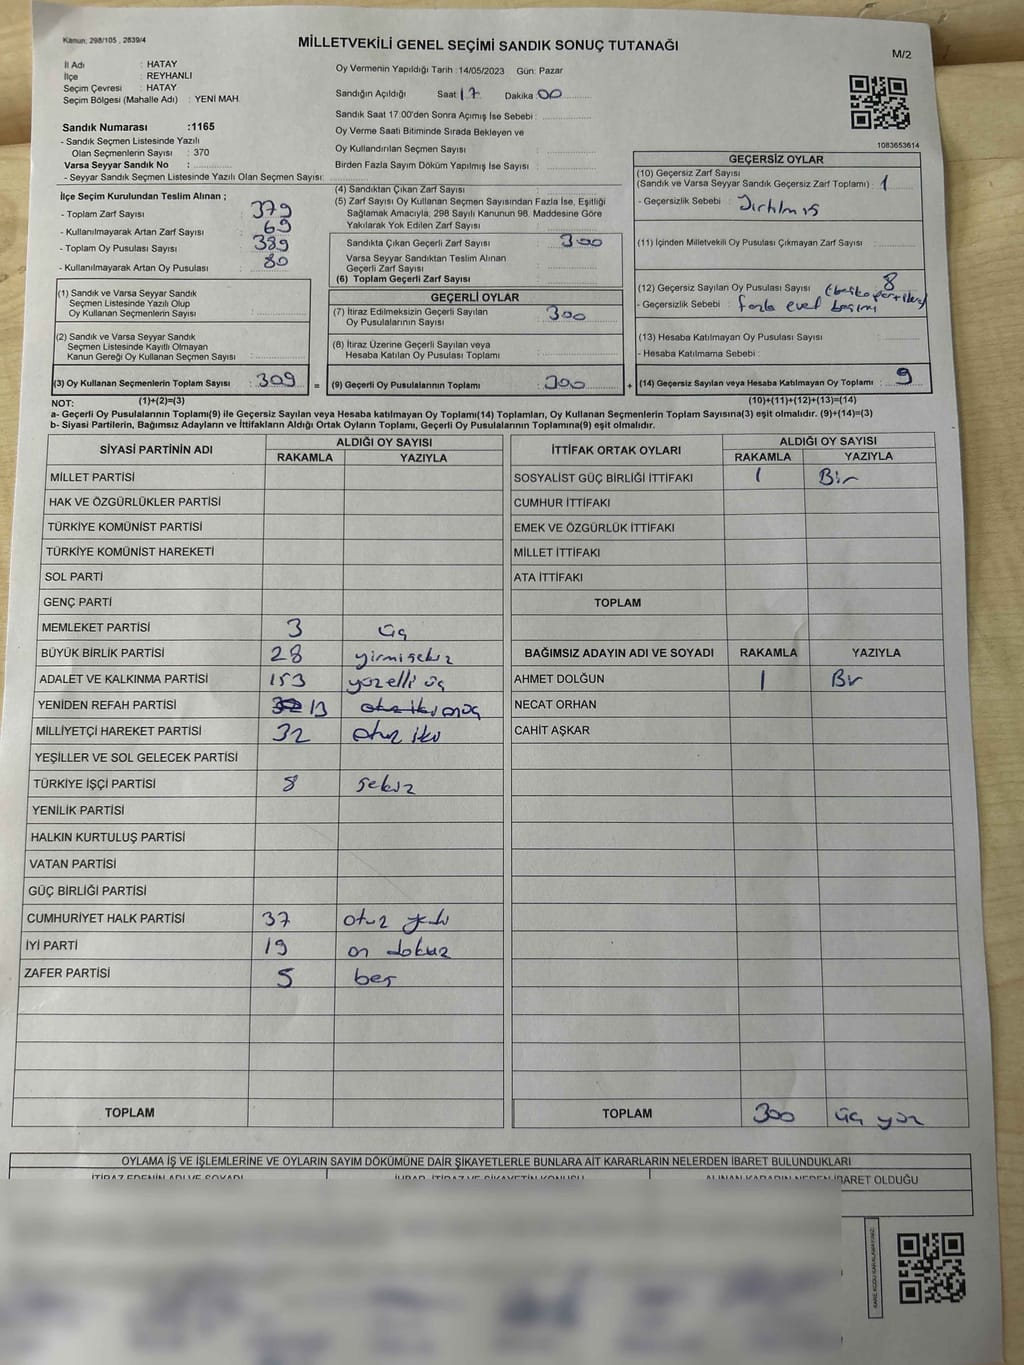 Kanun; 298/105 , 2839/4
MİLLETVEKİLİ GENEL SEÇİMİ SANDIK SONUÇ TUTANAĞI
M/2
İl Adı : HATAY
İlçe : REYHANLI
Seçim Çevresi : HATAY
Seçim Bölgesi (Mahalle Adı) : YENİ MAH.
Sandık Numarası :1165
- Sandık Seçmen Listesinde Yazılı
Olan Seçmenlerin Sayısı : 370
Varsa Seyyar Sandık No :
- Seyyar Sandık Seçmen Listesinde Yazılı Olan Seçmen Sayısı:
Oy Vermenin Yapıldığı Tarih :14/05/2023 Gün: Pazar
Sandığın Açıldığı Saat 17 Dakika :00
Sandık Saat 17:00'den Sonra Açımış İse Sebebi :
Oy Verme Saati Bitiminde Sırada Bekleyen ve
Oy Kullandırılan Seçmen Sayısı :
Birden Fazla Sayım Döküm Yapılmış İse Sayısı :
1083653614
İlçe Seçim Kurulundan Teslim Alınan ;
- Toplam Zarf Sayısı : 379
- Kullanılmayarak Artan Zarf Sayısı : 69
- Toplam Oy Pusulası Sayısı : 389
- Kullanılmayarak Artan Oy Pusulası : 80
(1) Sandık ve Varsa Seyyar Sandık
Seçmen Listesinde Yazılı Olup
Oy Kullanan Seçmenlerin Sayısı :
(2) Sandık ve Varsa Seyyar Sandık
Seçmen Listesinde Kayıtlı Olmayan
Kanun Gereği Oy Kullanan Seçmen Sayısı :
(3) Oy Kullanan Seçmenlerin Toplam Sayısı : 309 =
(4) Sandıktan Çıkan Zarf Sayısı :
(5) Zarf Sayısı Oy Kullanan Seçmen Sayısından Fazla İse, Eşitliği
Sağlamak Amacıyla; 298 Sayılı Kanunun 98. Maddesine Göre
Yakılarak Yok Edilen Zarf Sayısı :
Sandıkta Çıkan Geçerli Zarf Sayısı : 300
Varsa Seyyar Sandıktan Teslim Alınan
Geçerli Zarf Sayısı :
(6) Toplam Geçerli Zarf Sayısı :
GEÇERLİ OYLAR
(7) İtiraz Edilmeksizin Geçerli Sayılan
Oy Pusulalarının Sayısı : 300
(8) İtiraz Üzerine Geçerli Sayılan veya
Hesaba Katılan Oy Pusulası Toplamı :
(9) Geçerli Oy Pusulalarının Toplamı : 300 +
GEÇERSİZ OYLAR
(10) Geçersiz Zarf Sayısı
(Sandık ve Varsa Seyyar Sandık Geçersiz Zarf Toplamı) : 1
- Geçersizlik Sebebi : Yırtılmış
(11) İçinden Milletvekili Oy Pusulası Çıkmayan Zarf Sayısı :
(12) Geçersiz Sayılan Oy Pusulası Sayısı : 8
- Geçersizlik Sebebi : fazla evet basımı (başka partilere)
(13) Hesaba Katılmayan Oy Pusulası Sayısı :
- Hesaba Katılmama Sebebi :
(14) Geçersiz Sayılan veya Hesaba Katılmayan Oy Toplamı : 9
NOT: (1)+(2)=(3) (10)+(11)+(12)+(13)=(14)
a- Geçerli Oy Pusulalarının Toplamı(9) ile Geçersiz Sayılan veya Hesaba katılmayan Oy Toplamı(14) Toplamları, Oy Kullanan Seçmenlerin Toplam Sayısına(3) eşit olmalıdır. (9)+(14)=(3)
b- Siyasi Partilerin, Bağımsız Adayların ve İttifakların Aldığı Ortak Oyların Toplamı, Geçerli Oy Pusulalarının Toplamına(9) eşit olmalıdır.
SİYASİ PARTİNİN ADI ALDIĞI OY SAYISI
RAKAMLA YAZIYLA
MİLLET PARTİSİ
HAK VE ÖZGÜRLÜKLER PARTİSİ
TÜRKİYE KOMÜNİST PARTİSİ
TÜRKİYE KOMÜNİST HAREKETİ
SOL PARTİ
GENÇ PARTİ
MEMLEKET PARTİSİ 3 üç
BÜYÜK BİRLİK PARTİSİ 28 yirmisekiz
ADALET VE KALKINMA PARTİSİ 153 yüzelli üç
YENİDEN REFAH PARTİSİ 32 13 otuz iki onüç
MİLLİYETÇİ HAREKET PARTİSİ 32 otuz iki
YEŞİLLER VE SOL GELECEK PARTİSİ
TÜRKİYE İŞÇİ PARTİSİ 8 sekiz
YENİLİK PARTİSİ
HALKIN KURTULUŞ PARTİSİ
VATAN PARTİSİ
GÜÇ BİRLİĞİ PARTİSİ
CUMHURİYET HALK PARTİSİ 37 otuz yedi
İYİ PARTİ 19 on dokuz
ZAFER PARTİSİ 5 beş
TOPLAM
İTTİFAK ORTAK OYLARI ALDIĞI OY SAYISI
RAKAMLA YAZIYLA
SOSYALİST GÜÇ BİRLİĞİ İTTİFAKI 1 Bir
CUMHUR İTTİFAKI
EMEK VE ÖZGÜRLÜK İTTİFAKI
MİLLET İTTİFAKI
ATA İTTİFAKI
TOPLAM
BAĞIMSIZ ADAYIN ADI VE SOYADI RAKAMLA YAZIYLA
AHMET DOLĞUN 1 Bir
NECAT ORHAN
CAHİT AŞKAR
TOPLAM 300 üç yüz
OYLAMA İŞ VE İŞLEMLERİNE VE OYLARIN SAYIM DÖKÜMÜNE DAİR ŞİKAYETLERLE BUNLARA AİT KARARLARIN NELERDEN İBARET BULUNDUKLARI
İTİRAZ EDENİN ADI VE SOYADI İHBAR, İTİRAZ VE ŞİKAYETİN KONUSU ALINAN KARARIN NEDEN İBARET OLDUĞU